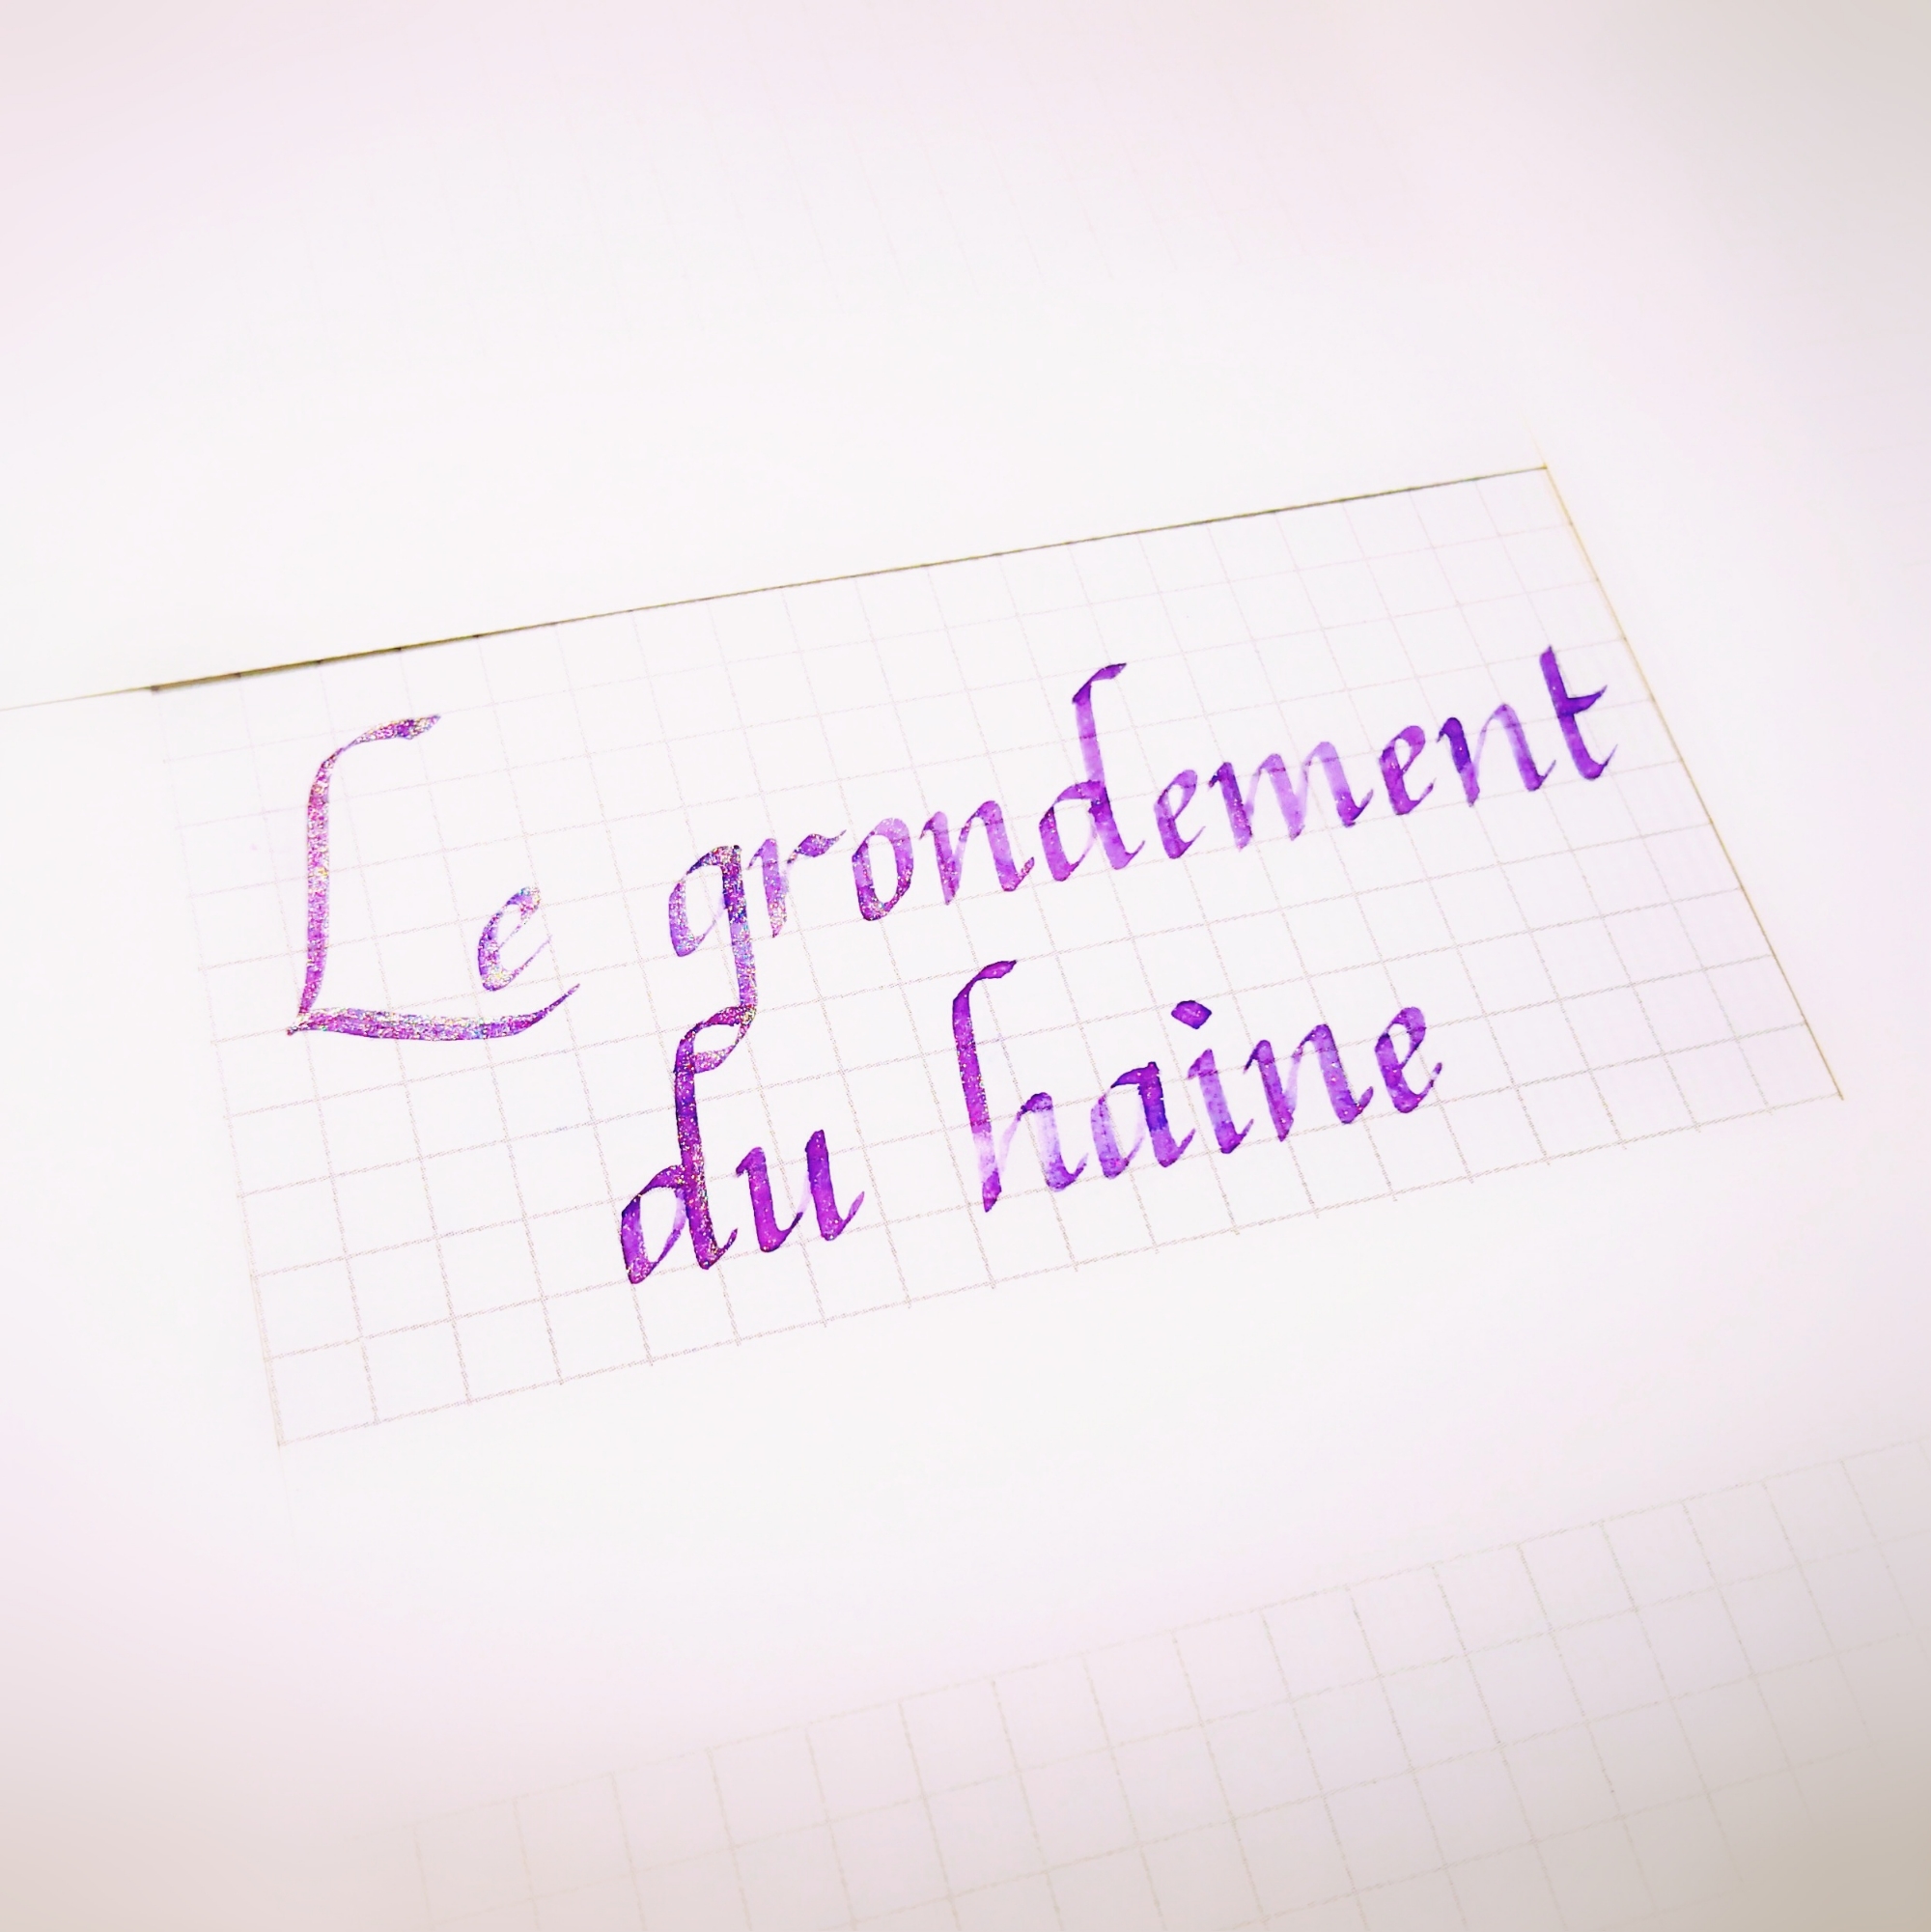 Le grondement
du haine